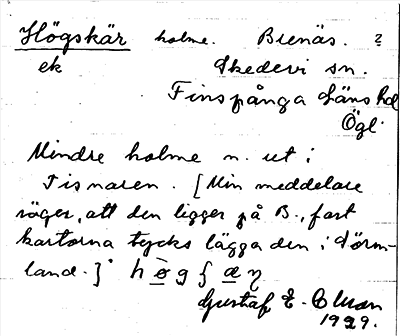 Högskär holme. Brenäs. ?
ek Skedevi sn.
Finspånga läns hd
Ögl.
Mindre holme n. ut i
Tisnaren. [Min meddelare
säger, att den ligger på B., fast
kartorna tycks lägga den i Sörm-
land.]
Gustaf E. Elvan
1929.